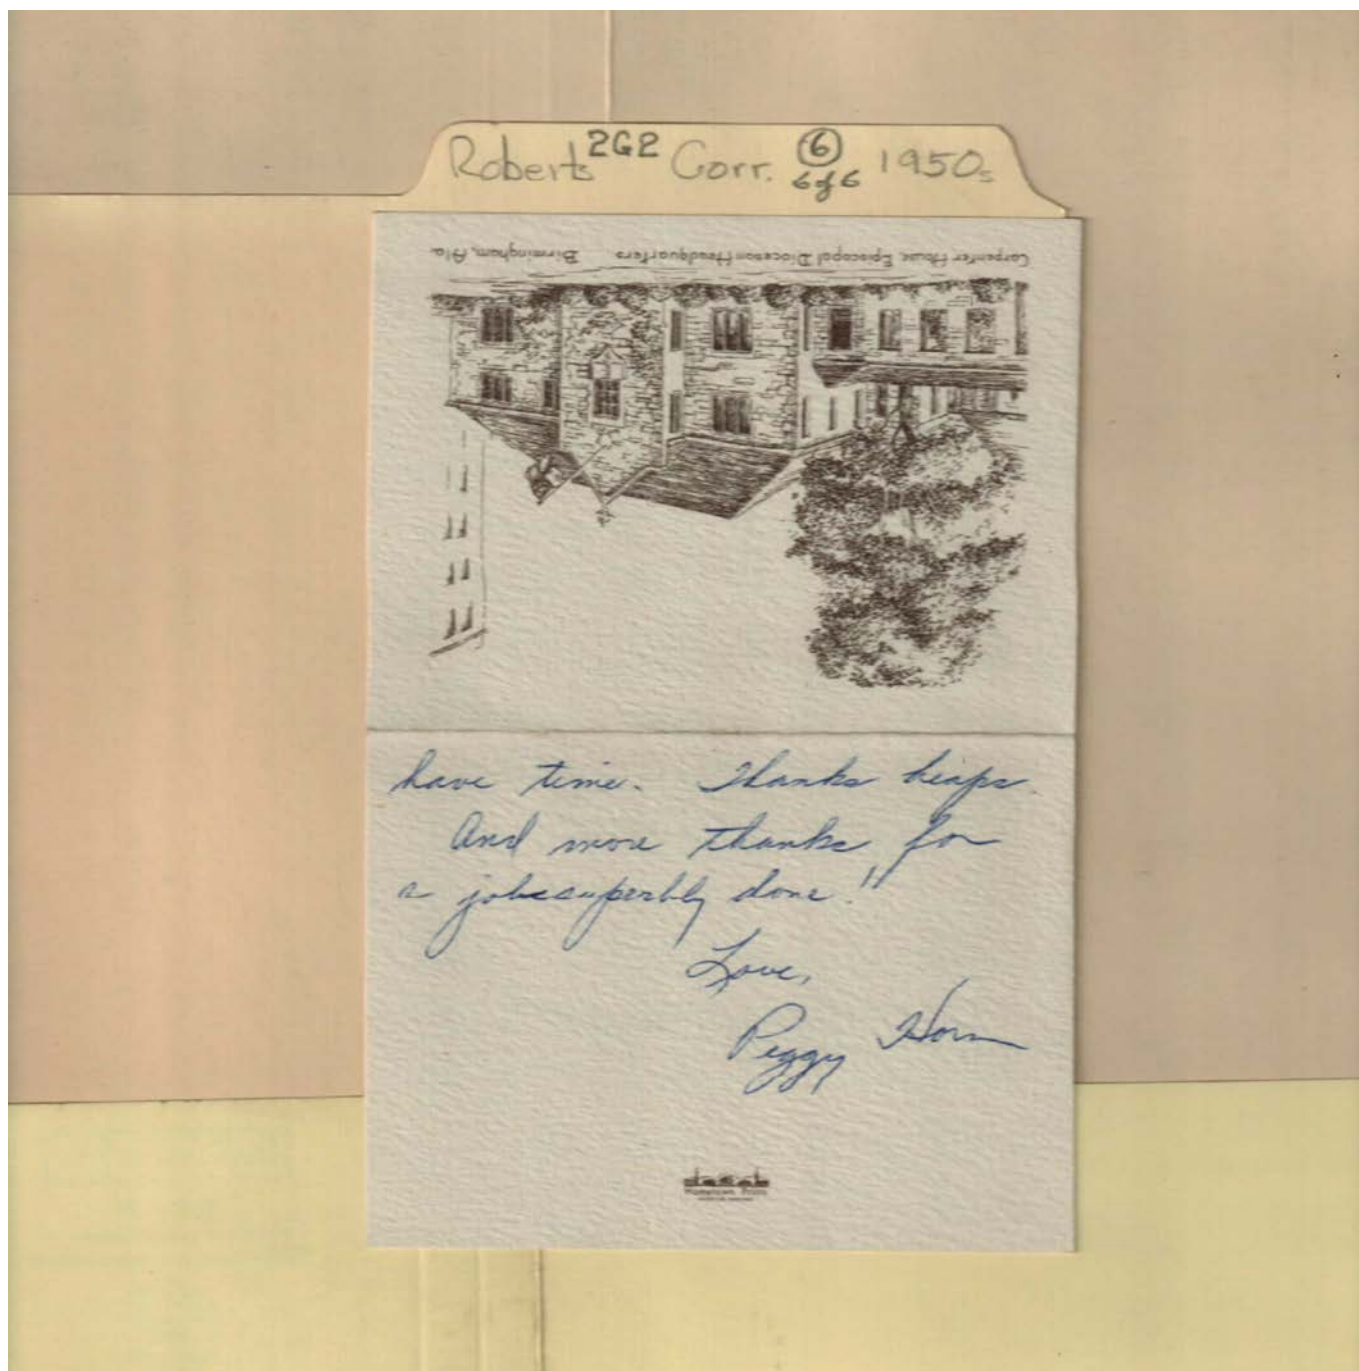 Roberts 2G2 Corr. 6 1950s
6 of 6
Carpenter House, Episcopal Diocesan Headquarters. Birmingham, Ala.
have time. Thanks heaps.
And more thanks for
a job superbly done!!
Love,
Peggy Horn
Hometown Prints